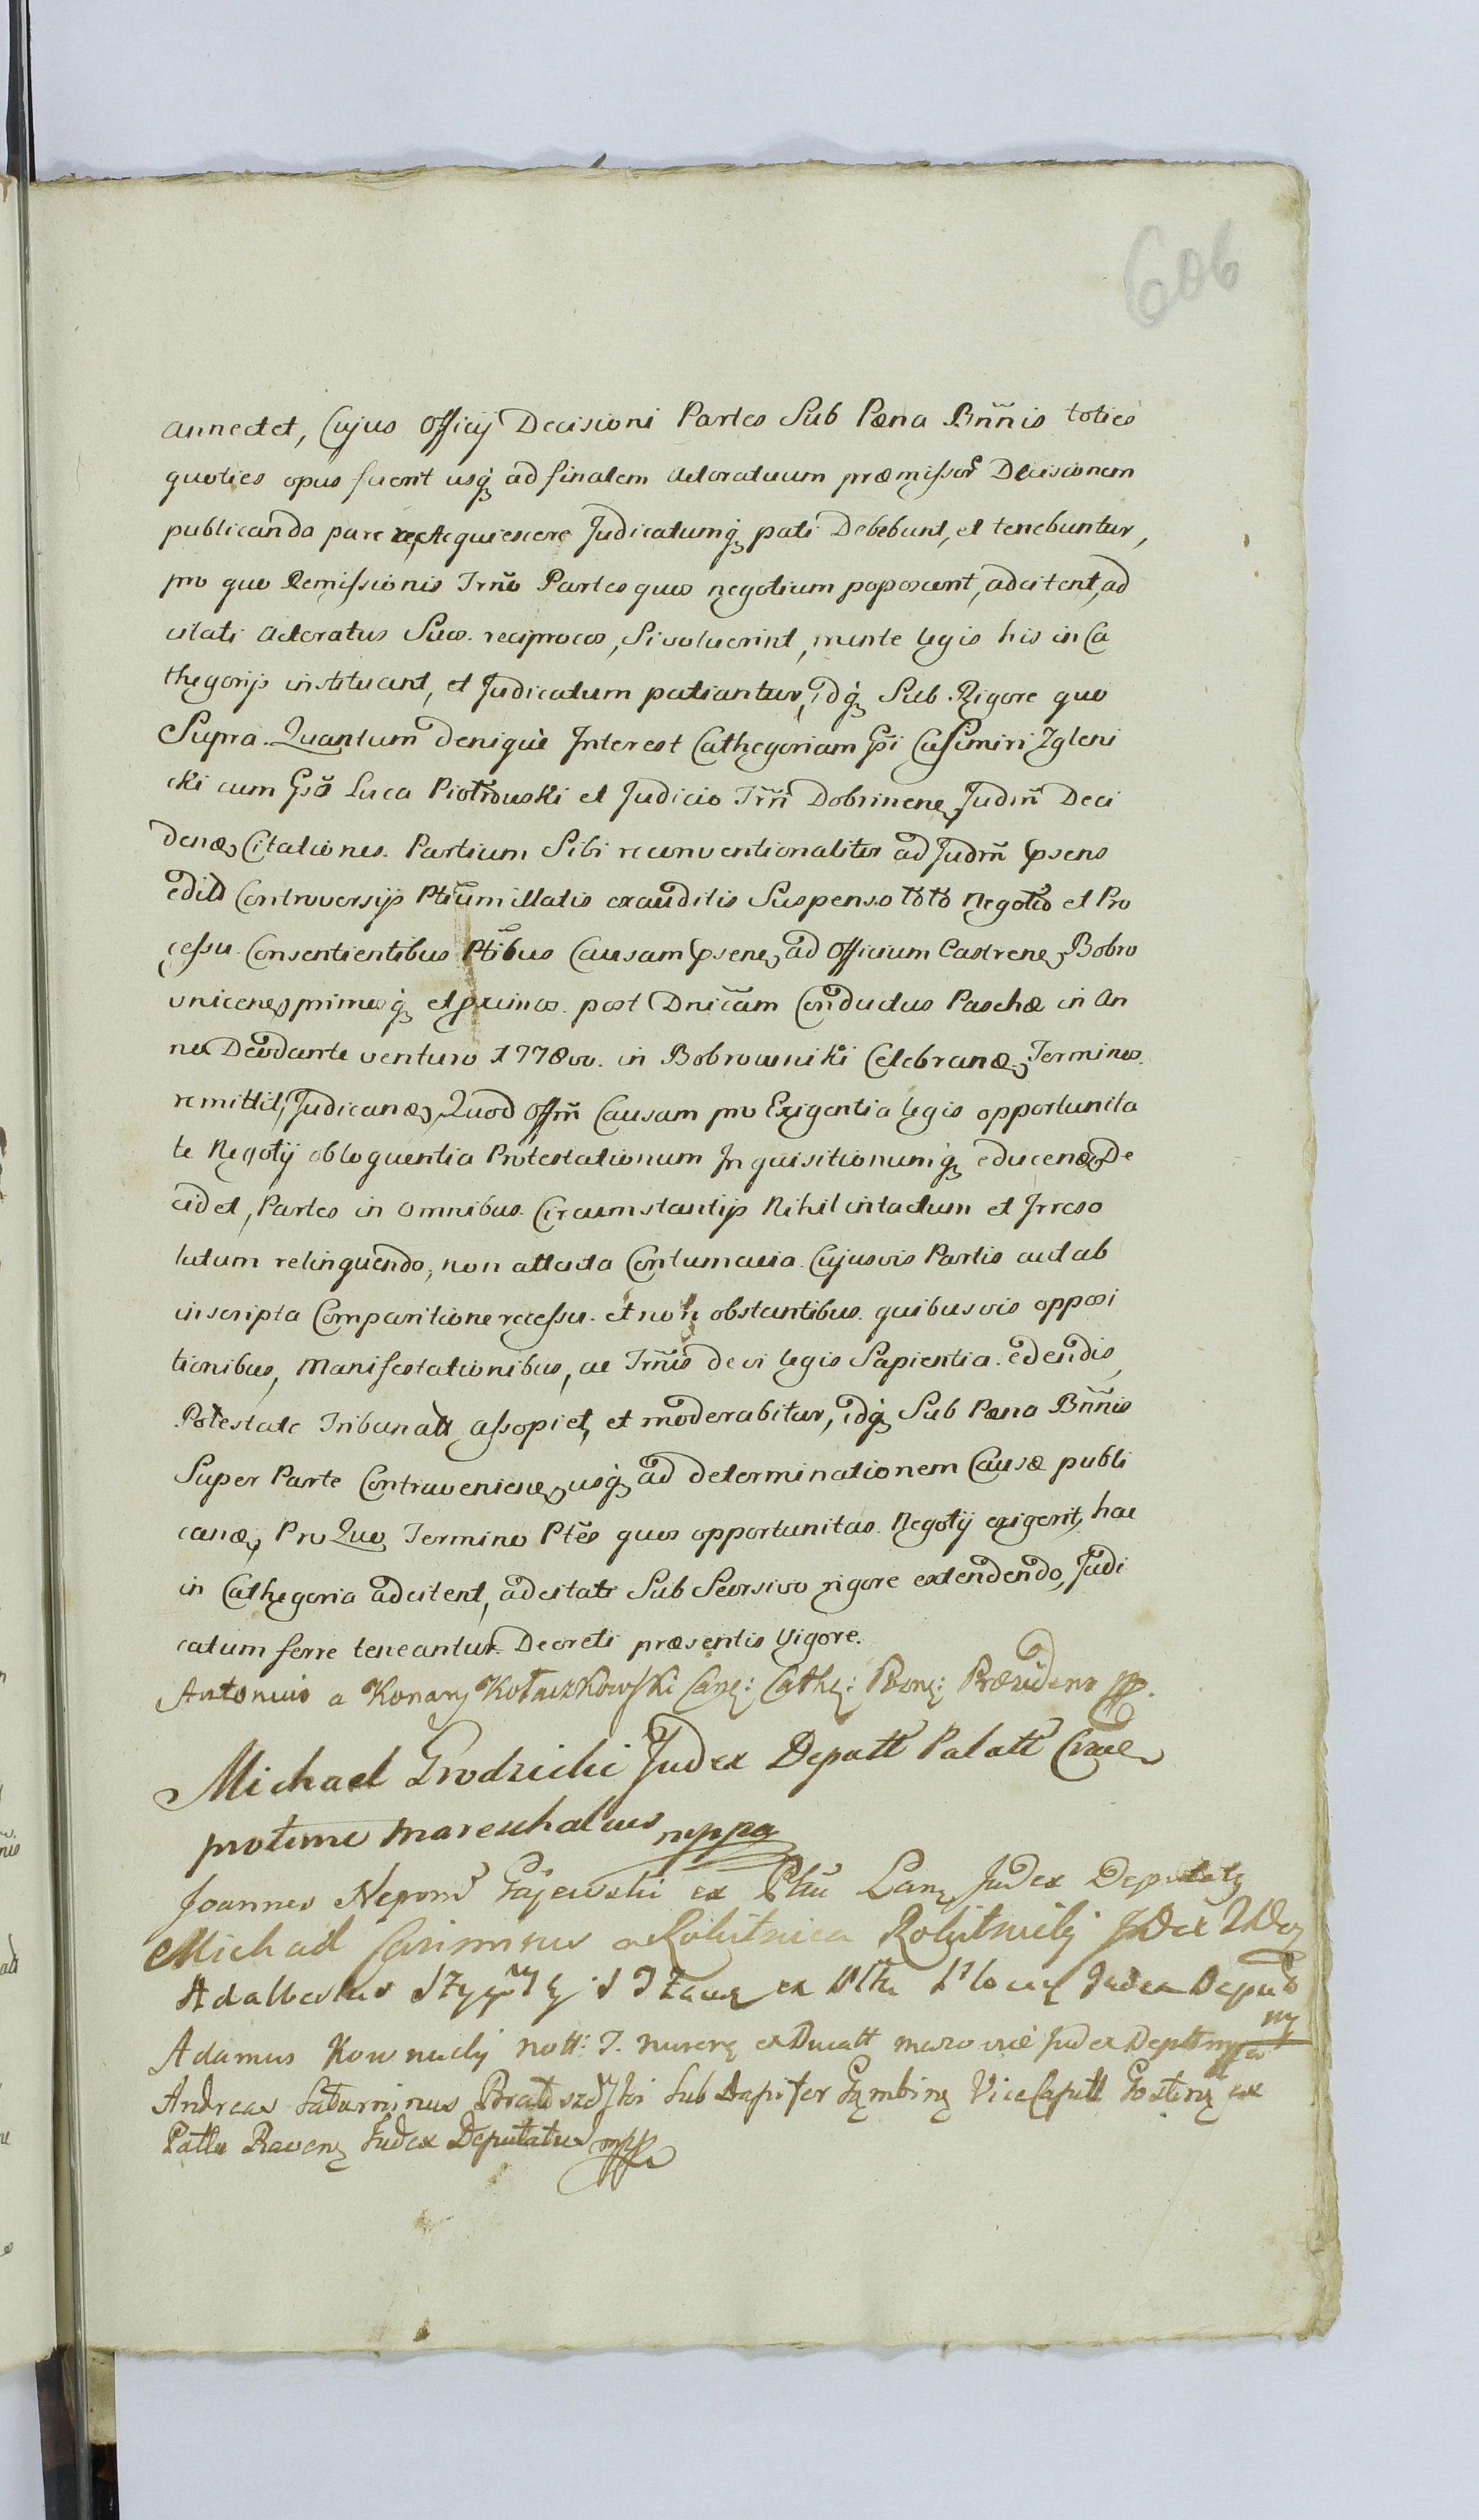 606
annectet, Cujus Officij Decisioni Partes Sub Pæna Bnnis toties
quoties opus fuerit usq ad finalem Actoratuum præmissor Decisionem
publicanda parere Acquiescere Judicatumq pati Debebunt, et tenebuntur,
pro quo Remissionis Trno Partes quos negotium poposcerit, adcitent, ad
citati Actoratus Suos. reciprocos, Si voluerint, mente legis his in Ca
thegorijs instituant, et Judicatum patiantur, idq Sub Rigore quo
Supra. Quantum denique Interest Cathegoriam Gsi Casimiri Igleni
cki cum Gso Luca Piotrowski et Judicio Trri Dobrinen Judm Deci
den Citationes. Partium Sibi reconventionaliter ad Judm psens
edit Controversijs Ptium illatis exauditis Suspenso toto Negotio et Pro
cessu. Consentientibus Ptibus Causam psen ad Officium Castren Bobro
vnicen primosq et pximos. post Dnicam Conductus Paschæ in An
no Deo dante venturo 1778vo. in Bobrowniki Celebran Terminos.
remittit Judican Quod Offm Causam pro Exigentia legis opportunita
te Negotij obloquentia Protestationum Inquisitionumq educen De
cidet, Partes in omnibus. Circumstantijs Nihil intactum et Irreso
lutum relinquendo, non attenta Contumacia. Cujusvis Partis aut ab
inscripta Comparitione recessu. et non obstantibus. quibusvis opposi
tionibus, Manifestationibus, ac Trmis de vi legis Sapientia. edendis,
Potestate Tribunatt assopiet, et moderabitur, idq Sub Pæna Bnnis
Super Parte Contravenien usq ad determinationem Causæ publi
can, Pro Quo Termino Ptes quos opportunitas. Negotij exigerit, hac
in Cathegoria adcitent, adcitati Sub Seorsivo rigore extendendo, Judi
catum ferre teneantur. Decreti præsentis Vigore.
Antonius a Konary Kołaczkowski Can: Cath: Posn: Præsidens
Michael Grodzicki Judex Deputt Palatt Crac
protunc Mareschalcus mppa
Joannes Nepom Gajewski ex Judex Deputat
Michael Casimirus a Rokitnica Rokitnicki
Adalbertus ex Judex Deput
mp
Adamus Kownacki nott: T. nuren ex Ducatt mazoviæ Judex Deptt mppa
Andreas Saturninus Sub Dapifer Gąmbin Vice Capitt Gostin ex
Pattu Raven Judex Deputatus mpp